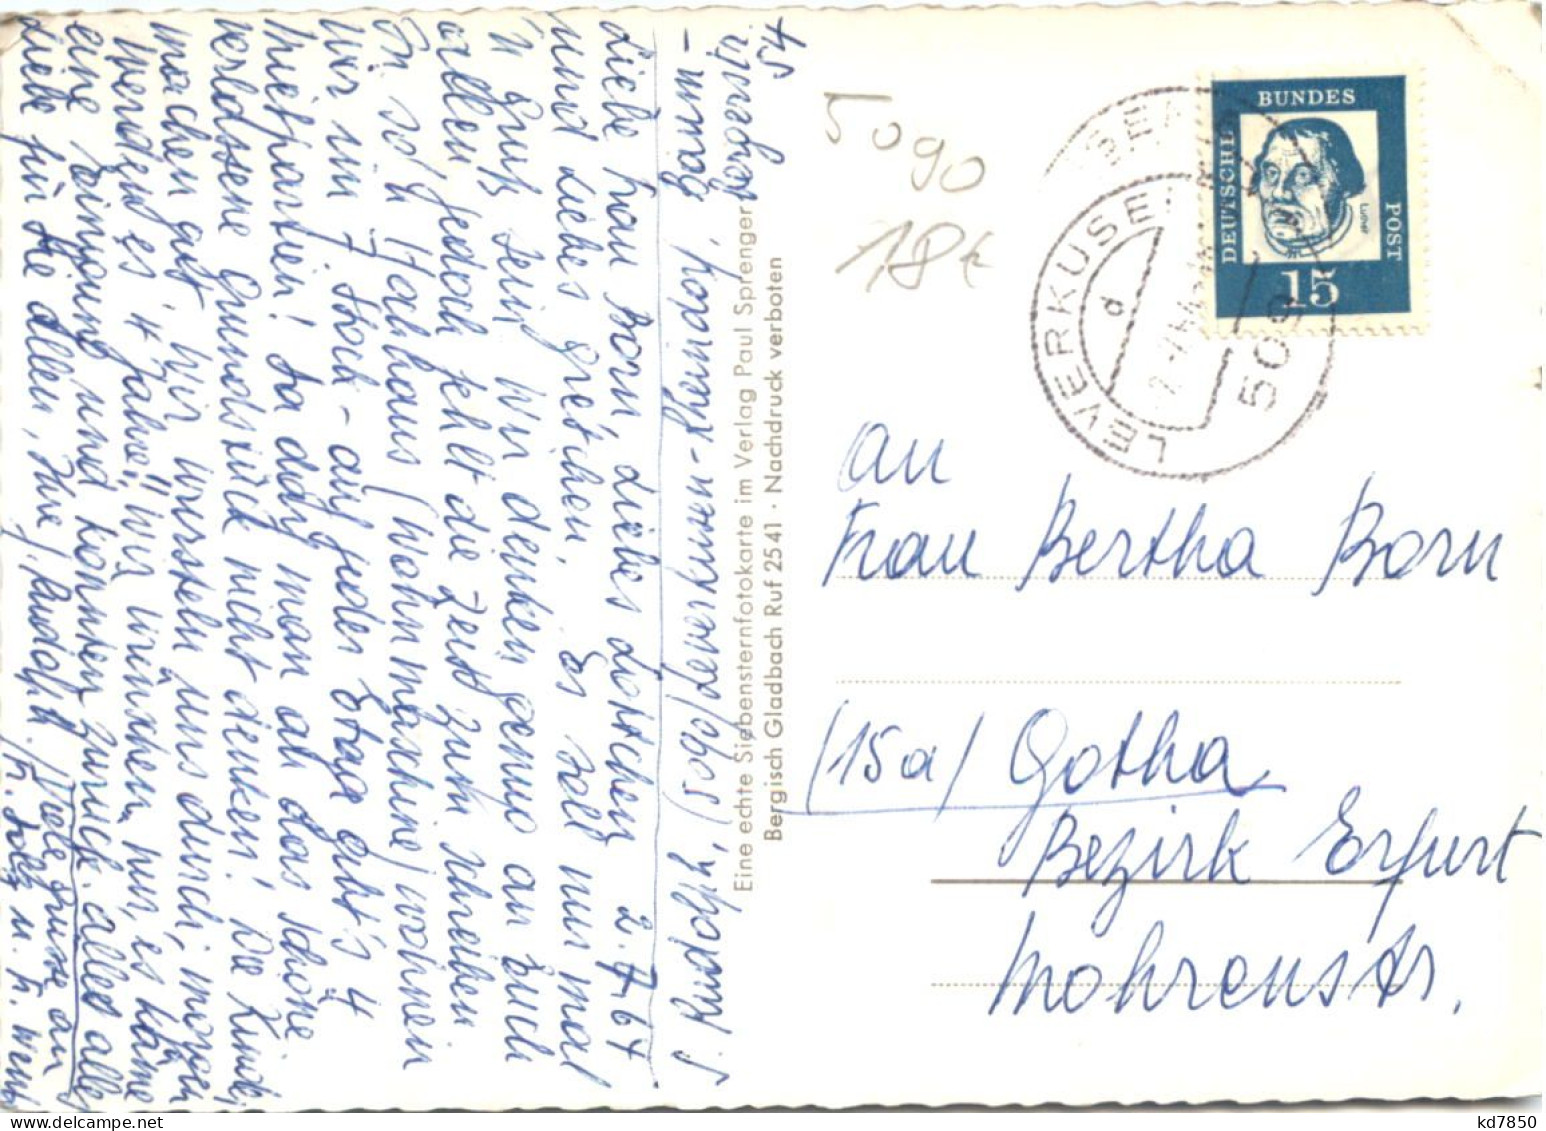 S. Rudolph, (5090) Leverkusen-Rheindorf,
-umag
Liebe Frau Born, liebes Lottchen 2.7.64
und liebes Gretchen. Es soll nur mal
n Gruß sein. Wir denken genug an Euch
allen jedoch fehlt die Zeit zum schreiben.
In so 'n Hochhaus (Wohnmaschine) wohnen
wir im 7. Stock - auf jeder Etage gibt's 4
Mietparteien! Da darf man an das schöne
verlassene Grundstück nicht denken! Die Kinder
machen gut. Wir wursteln uns durch, morgen
werden es 4 Jahre. Wir wünschen nur, es käme
eine Einigung und könnten zurück. Alles alles
Liebe für Sie allen, Ihre J. Rudolph. Viele Grüße an
Fr.
Eine echte Siebensternfotokarte im Verlag Paul Sprenger
Bergisch Gladbach Ruf 2541 · Nachdruck verboten
5090
18t
LEVERKUSEN
d
509
DEUTSCHE
BUNDES
POST
Luther
15
An
Frau Bertha Born
(15a) Gotha
Bezirk Erfurt
Mohrenstr.
kd7850